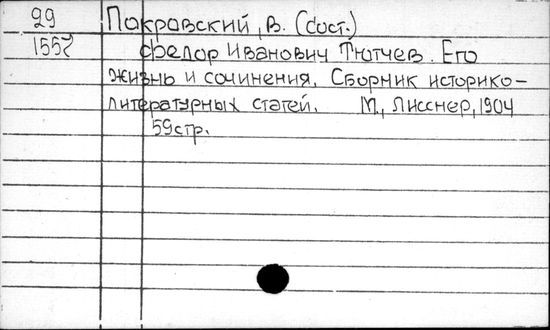 29 Покровский, В. (сост.)
1557 Федор Иванович Тютчев. Его
жизнь и сочинения. Сборник историко-
литературных статей. М., Лисснер, 1904
59стр.